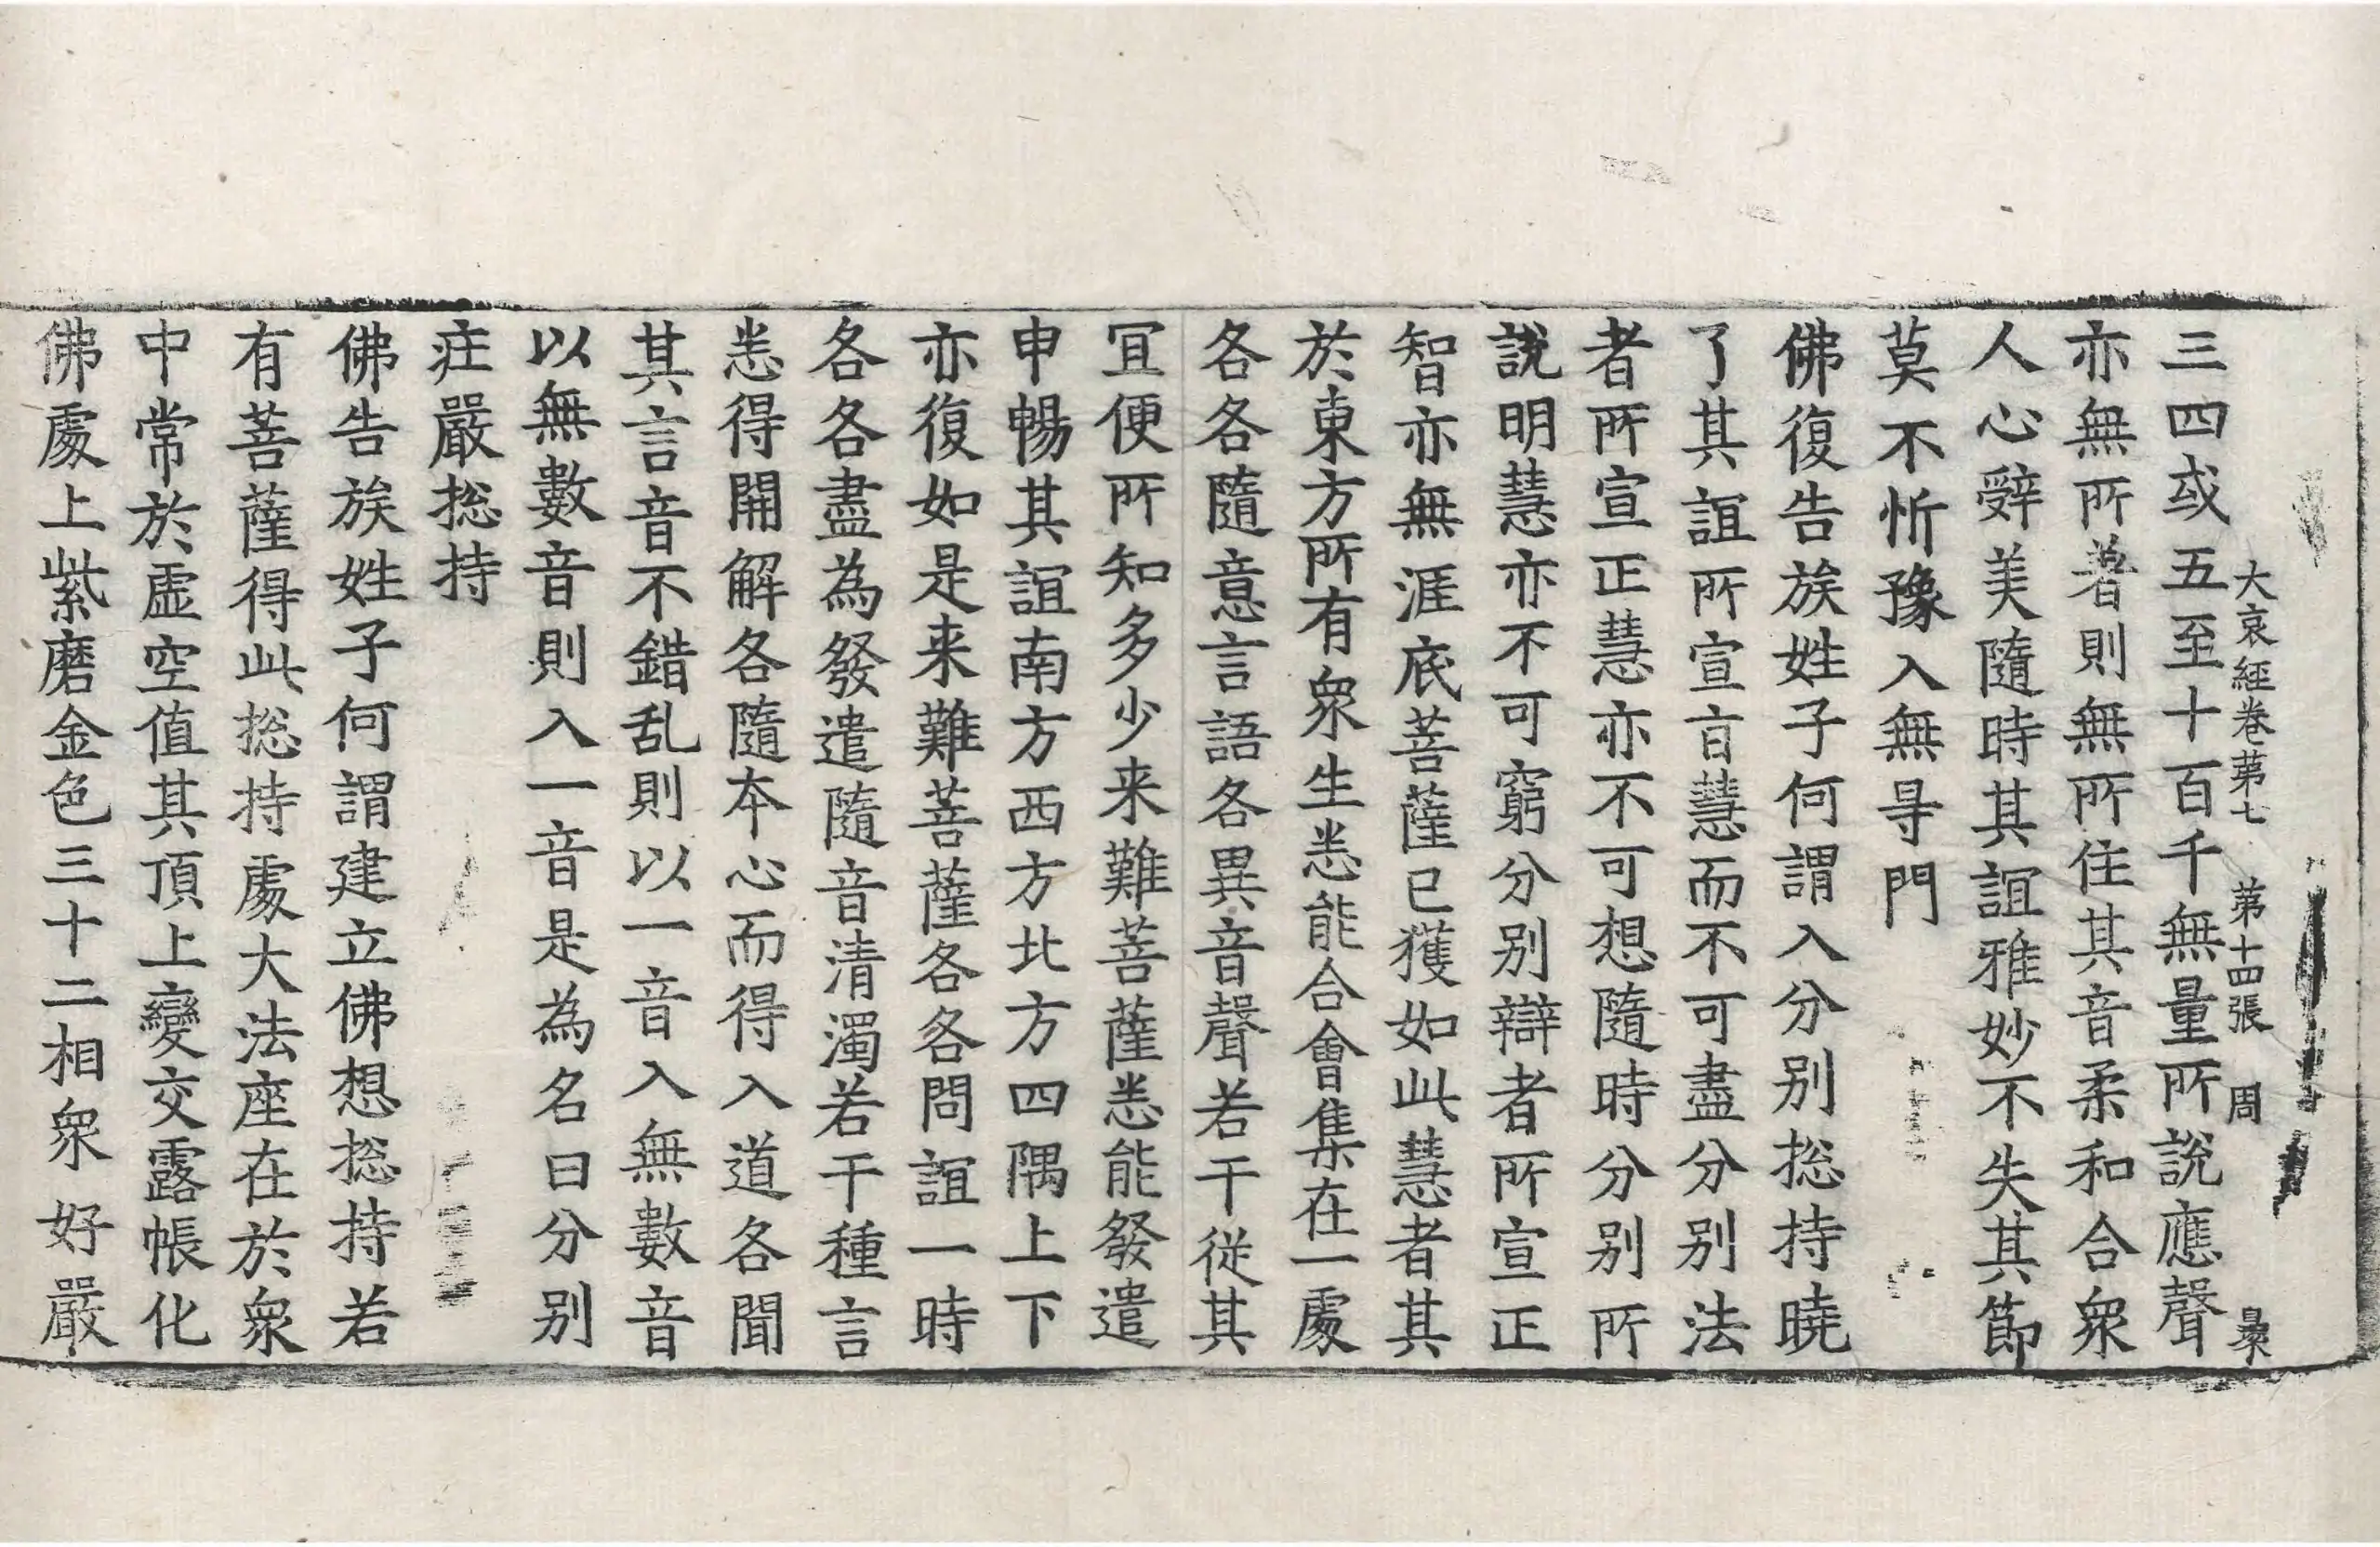 大哀経卷第七　第十四張　周
三四或五至十百千無量所說應聲
亦無所著則無所住其音柔和合衆
人心辤美隨時其誼雅妙不失其節
莫不忻豫入無㝵門
佛復告族姓子何謂入分别捴持曉
了其誼所宣㫖慧而不可盡分别法
者所宣正慧亦不可想隨時分别所
說明慧亦不可窮分别辯者所宣正
智亦無涯底菩薩已獲如此慧者其
於東方所有衆生悉能合會集在一處
各各隨意言語各異音聲若干従其
冝便所知多少来難菩薩悉能發遣
申暢其誼南方西方北方四隅上下
亦復如是来難菩薩各各問誼一時
各各盡為發遣隨音清濁若干種言
悉得開解各隨本心而得入道各聞
其言音不錯乱則以一音入無數音
以無數音則入一音是為名曰分别
疘嚴捴持
佛告族姓子何謂建立佛想捴持若
有菩薩得此捴持處大法座在於衆
中常於虛空值其頂上變交露帳化
佛處上紫磨金色三十二相衆好嚴